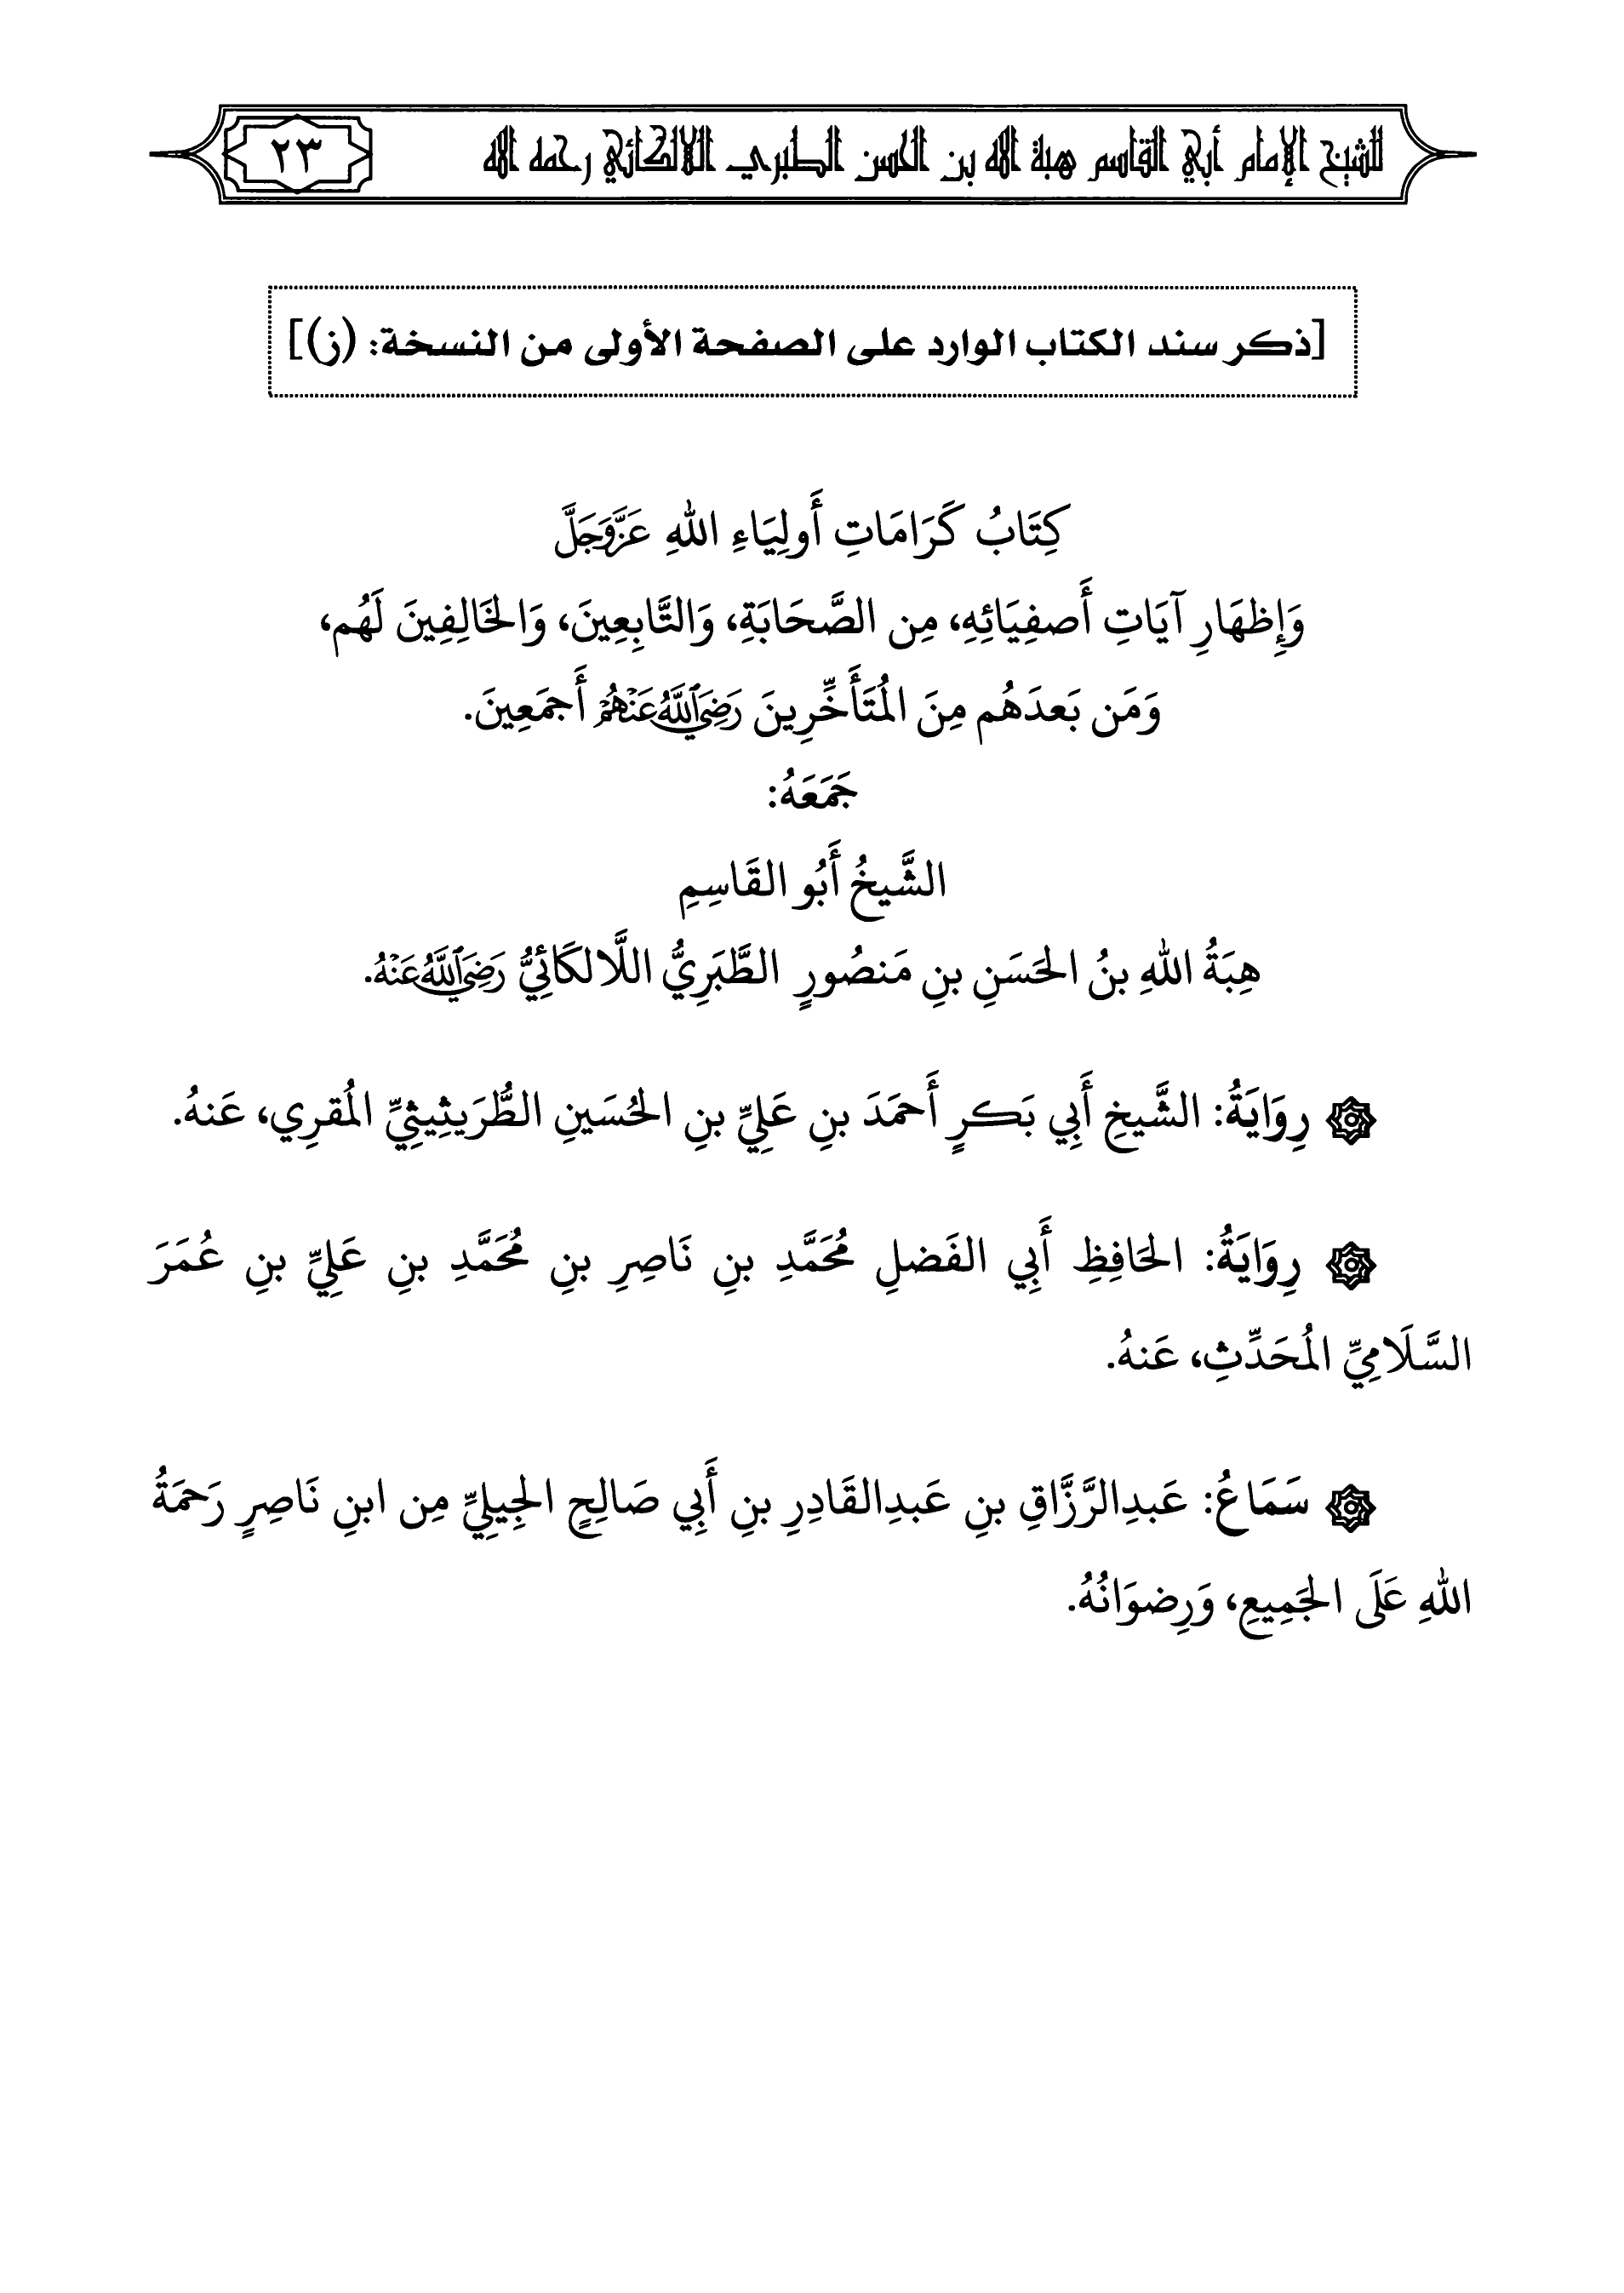 للشيخ الإمام أبي القاسم هبة الله بن الحسن الطبري اللالكائي رحمه الله
٢٣
[ذكر سند الكتاب الوارد على الصفحة الأولى من النسخة: (ز)]
كِتَابُ كَرَامَاتِ أَولِيَاءِ اللهِ عَزَّوَجَلَّ
وَإِظهَارِ آيَاتِ أَصفِيَائِهِ، مِن الصَّحَابَةِ، وَالتَّابِعِينَ، وَالخَالِفِينَ لَهُم،
وَمَن بَعدَهُم مِنَ المُتَأَخِّرِينَ رَضِيَ ٱللَّهُ عَنْهُمْ أَجمَعِينَ.
جَمَعَهُ:
الشَّيخُ أَبُو القَاسِمِ
هِبَةُ اللهِ بنُ الحَسَنِ بنِ مَنصُورٍ الطَّبَرِيُّ اللَّالكَائِيُّ رَضِيَ ٱللَّهُ عَنْهُ.
رِوَايَةُ: الشَّيخِ أَبِي بَكرٍ أَحمَدَ بنِ عَلِيِّ بنِ الحُسَينِ الطُّرَيثِيثِيِّ المُقرِي، عَنهُ.
رِوَايَةُ: الحَافِظِ أَبِي الفَضلِ مُحَمَّدِ بنِ نَاصِرِ بنِ مُحَمَّدِ بنِ عَلِيِّ بنِ عُمَرَ
السَّلَامِيِّ المُحَدِّثِ، عَنهُ.
سَمَاعُ: عَبدِالرَّزَّاقِ بنِ عَبدِالقَادِرِ بنِ أَبِي صَالِحٍ الجِيلِيِّ مِن ابنِ نَاصِرٍ رَحمَةُ
اللهِ عَلَى الجَمِيعِ، وَرِضوَانُهُ.